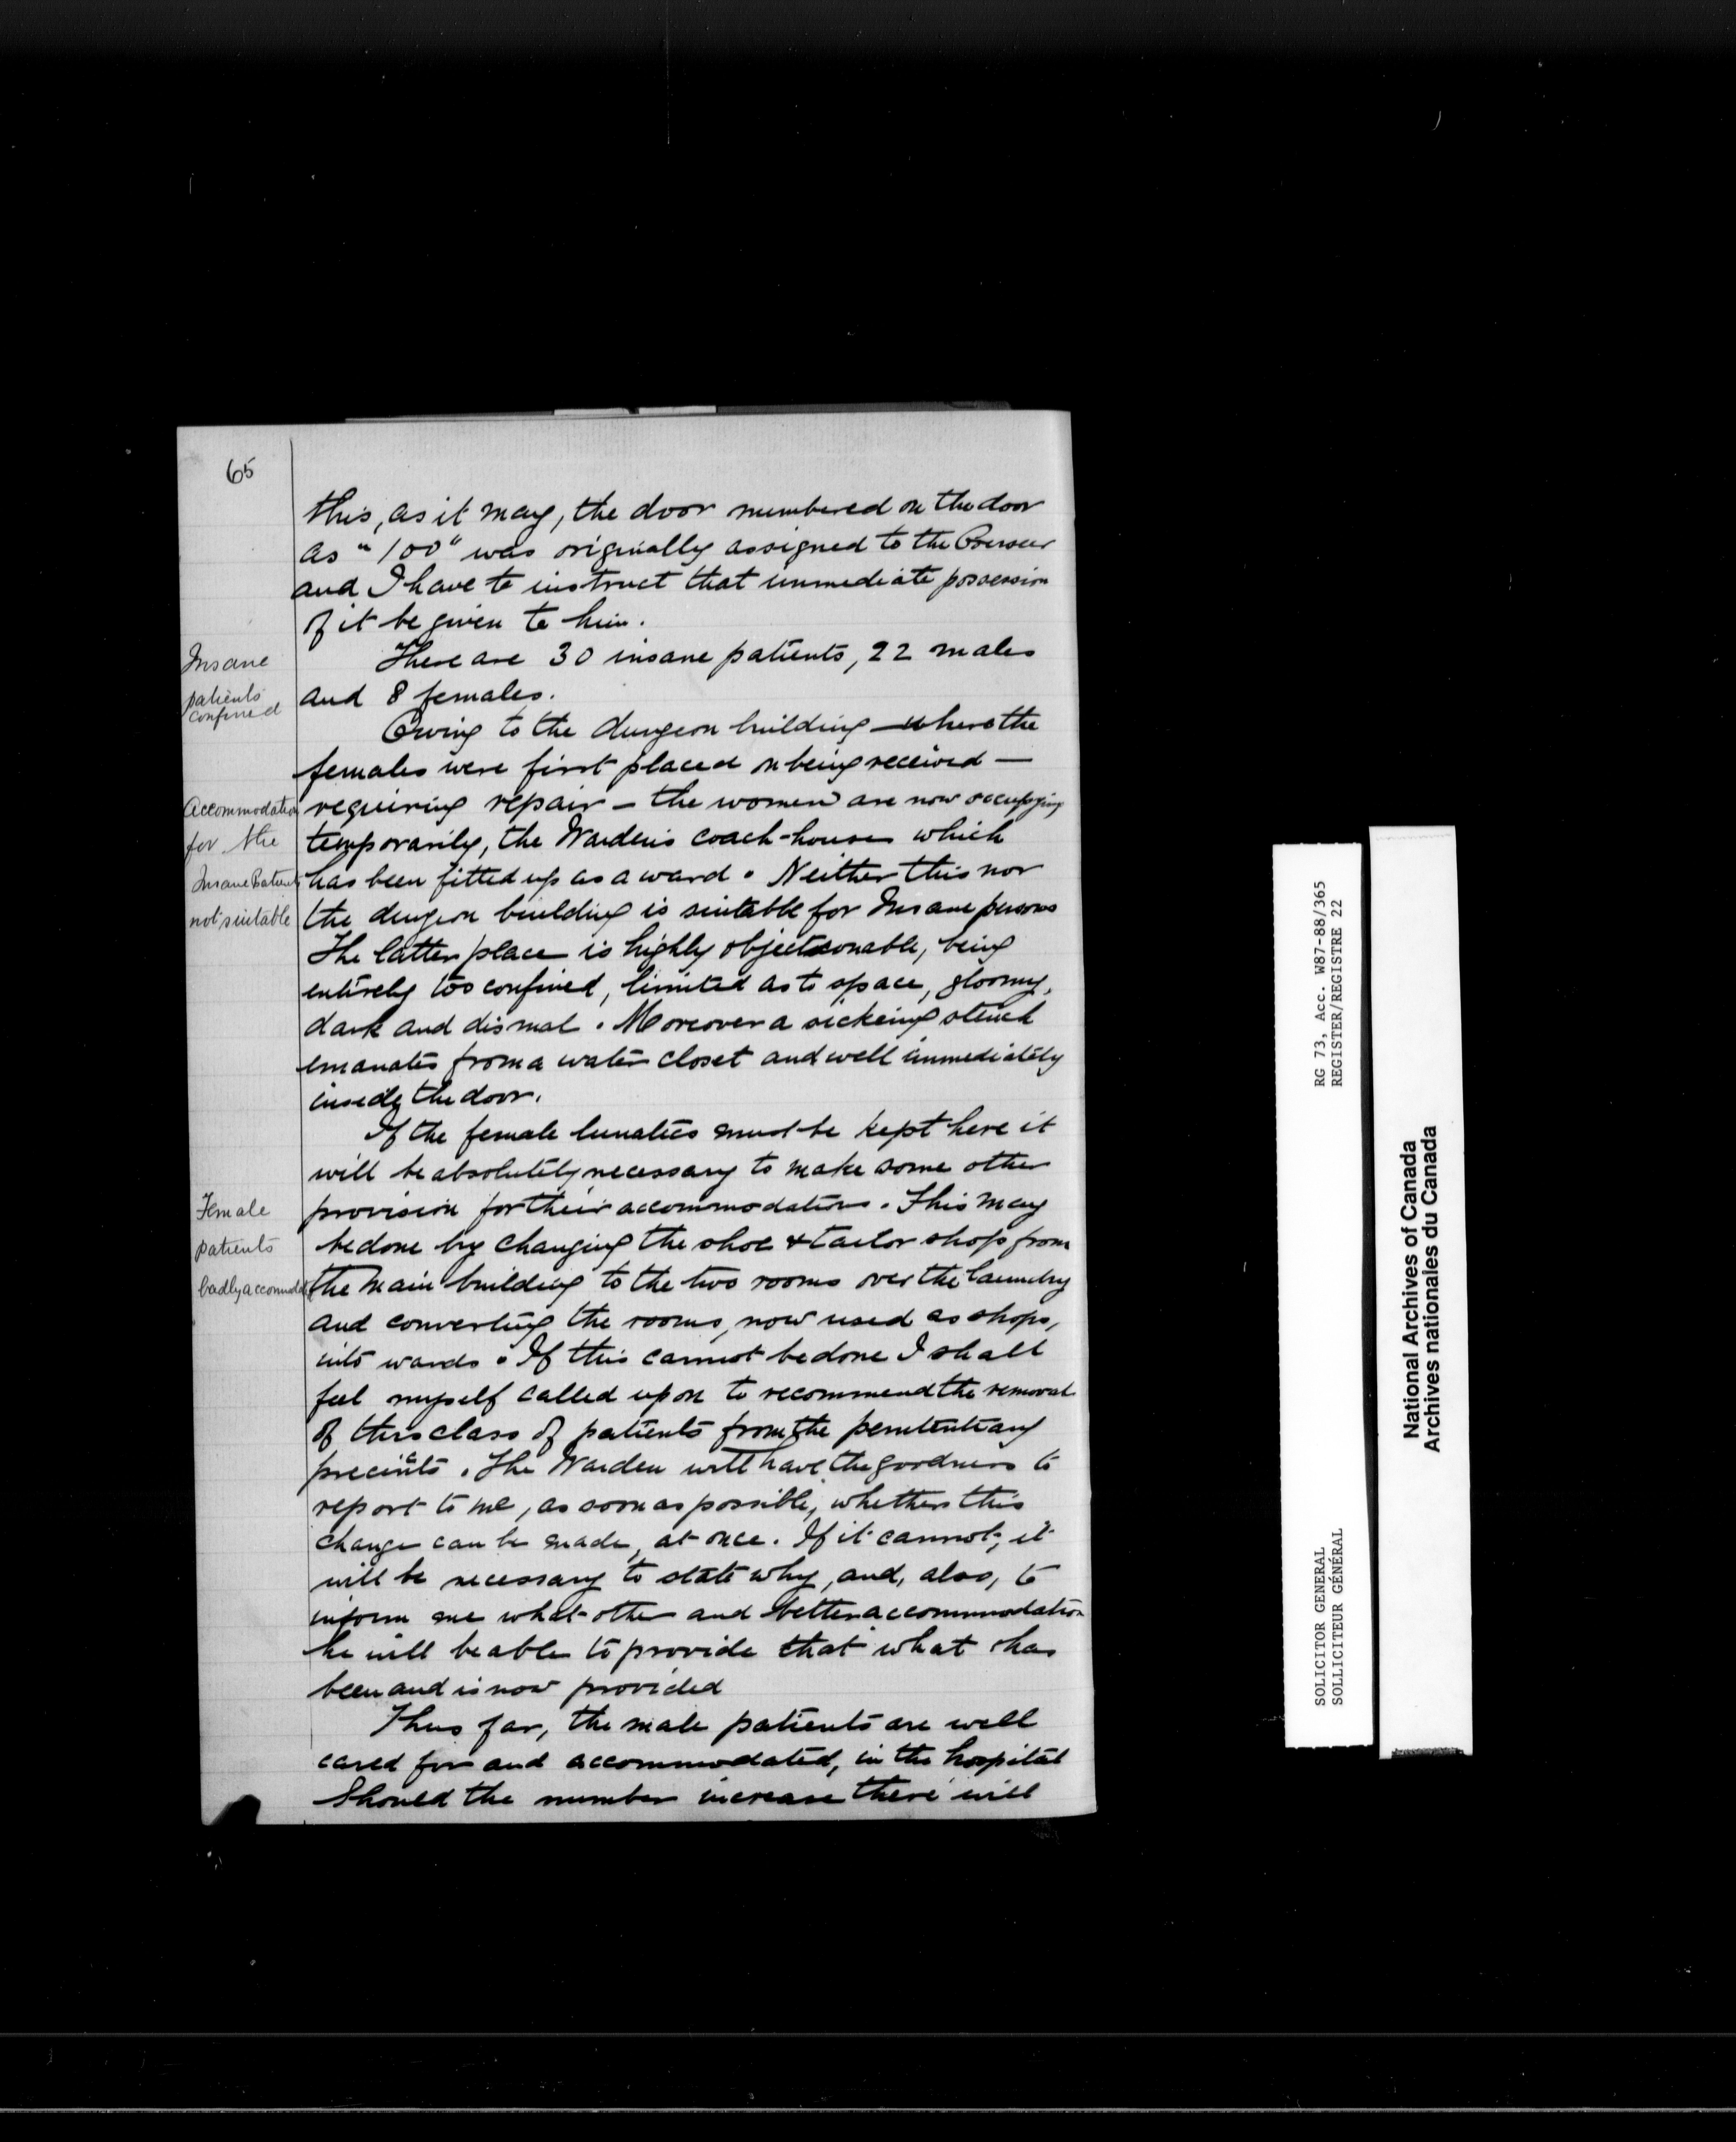 65
this, as it may, the door numbered on the door
as "100" was originally assigned to the Overseer
and I have to instruct that immediate possession
of it be given to him.
Insane
patients
confined
There are 30 insane patients, 22 males
and 8 females.
Owing to the dungeon building — where the
females were first placed on being received —
Accommodation
for the
Insane Patients
not suitable
requiring repair — the women are now occupying
temporarily, the Warden's coach-house which
has been fitted up as a ward. Neither this nor
the dungeon building is suitable for Insane persons
The latter place is highly objectionable, being
entirely too confined, limited as to space, gloomy,
dark and dismal. Moreover a sickeing stench
emanates from a water closet and well immediately
inside the door.
If the female lunatics must be kept here it
will be absolutely necessary to make some other
Female
patients
badly accommodated
provision for their accommodation. This may
be done by changing the shoe & tailor shop from
the main building to the two rooms over the laundry
and converting the rooms, now used as shops,
into wards. If this cannot be done I shall
feel myself called upon to recommend the removal
of this class of patients from the penitentiary
precincts. The Warden will have the goodness to
report to me, as soon as possible, whether this
change can be made, at once. If it cannot, it
will be necessary to state why, and, also, to
inform me what other and better accommodation
he will be able to provide that what has
been and is now provided
Thus far, the male patients are well
cared for and accommodated, in the hospital
Should the number increase there will
RG 73, Acc. W87-88/365
REGISTER/REGISTRE 22
SOLICITOR GENERAL
SOLLICITEUR GÉNÉRAL
National Archives of Canada
Archives nationales du Canada